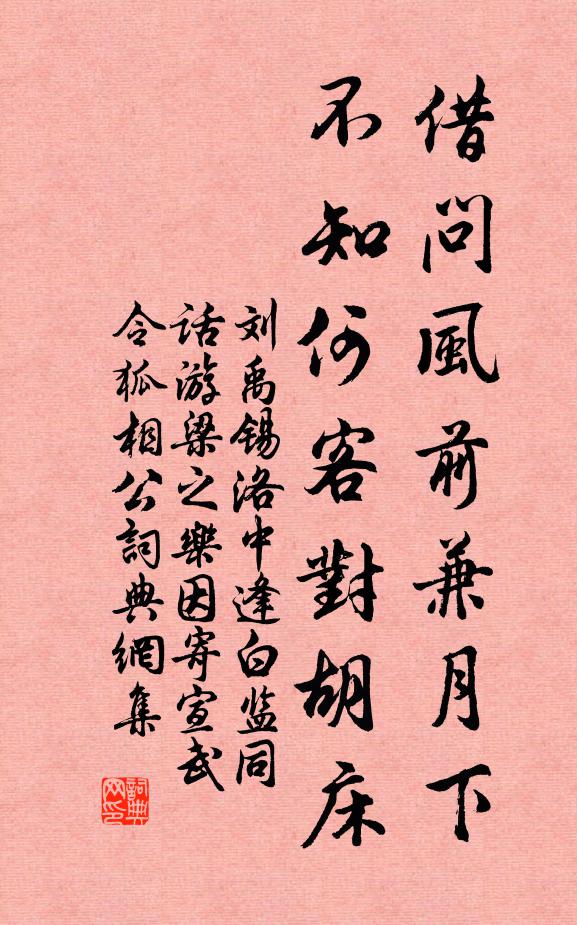 借問風前兼月下
不知何客對胡床
刘禹锡洛中逢白监同
話游梁之樂因寄宣武
令狐相公詞典網集
詞典网印